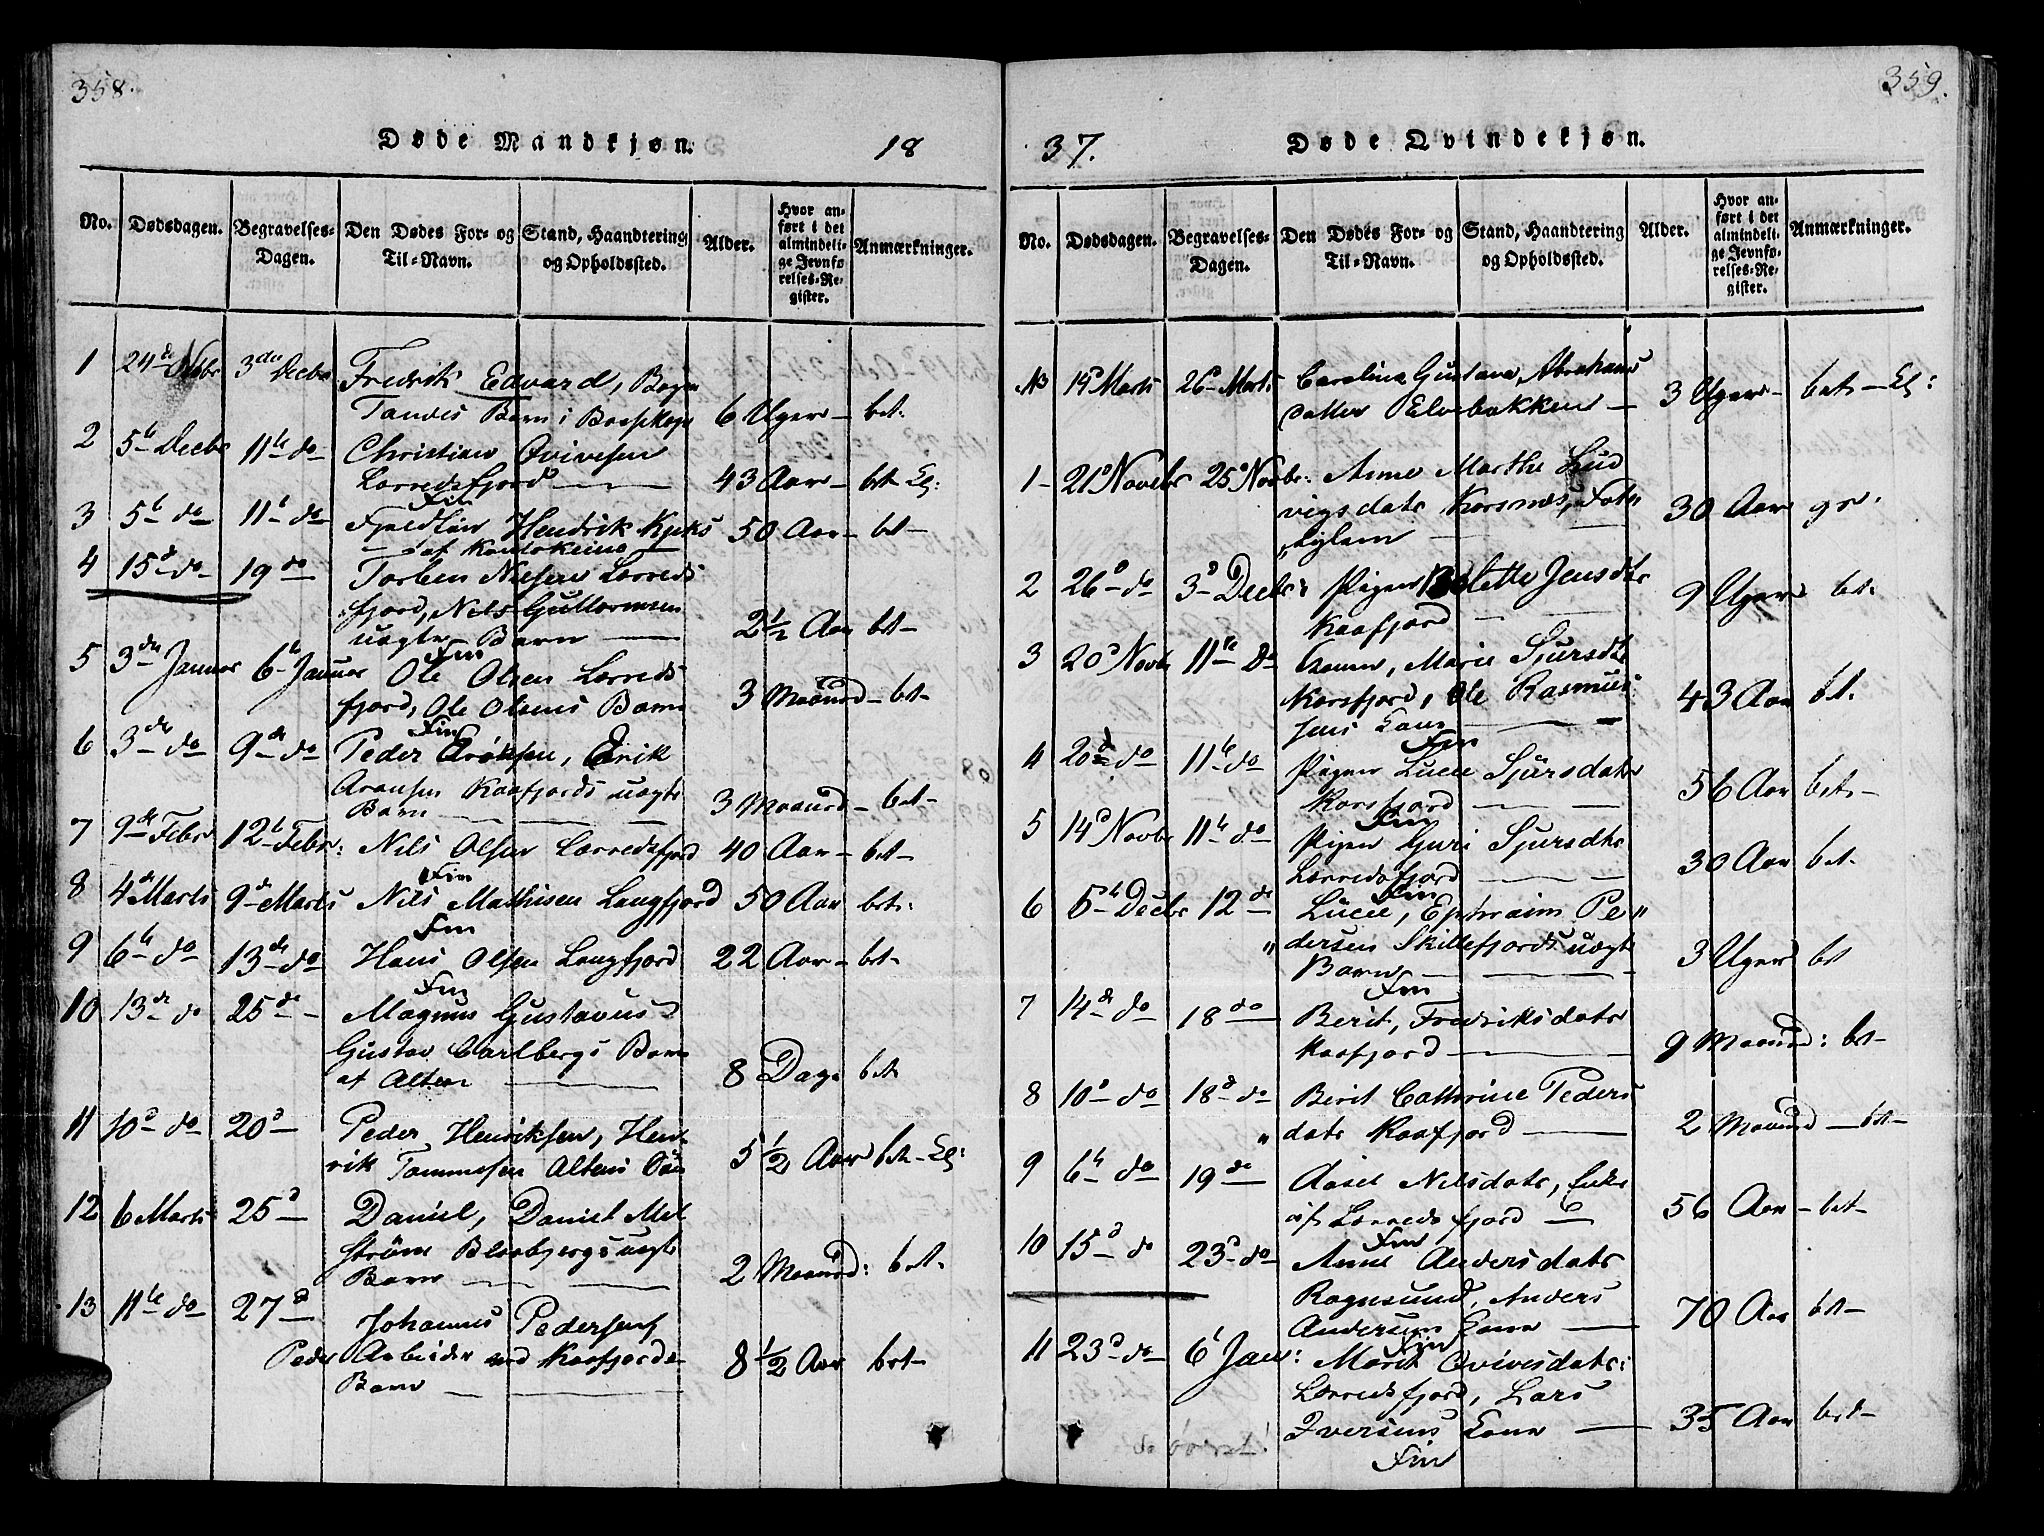 358.
Døde Mandkjøn. 18
No. Dødsdagen. Begravelses-Dagen. Den Dødes For- og Til-Navn. Stand, Haandtering og Opholdssted. Alder. Hvor anført i det almindelige Jevnførelses-Register. Anmærkninger.
1 24de Novbr 3die Decbr Fredrik Edvard,
Barn i Bossekop 6 Uger - bet.
2 5te Decbr 11te do Christian Qvivesen
Lerredsfjord 43 Aar - bet El:
Fin
3 5te do 11te do Fjeldfin Hendrik
af Kautokeino 50 Aar - bet -
4 15de do 19 do Torben Nielsen Lerreds
fjord, Nels Guttormsen
uægte Barn 2½ Aar bet -
Fin
5 3die Januar 6te Januar Ole Olsen Lerreds
fjord, Ole Olsens Barn 3 Maaned - bet -
Fin
6 3die do 9de do Peder Eriksen, Erik
Aronsen Kaafjords uægte
Barn 3 Maaned - bet -
7 9de Febr 12te Febr: Nils Olsen Lerredsfjord 40 Aar - bet -
Fin
8 4de Marts 9de Marts Nils Mathisen Langfjord 50 Aar bet:
Fin
9 6te do 13de do Hans Olsen Langfjord 22 Aar - bet -
Fin
10 13de do 25de - Magnus Gustavus
Gustav Carlbergs Barn
af Alten 8 Dage bet
11 10d do 20d - Peder Henriksen, Hen
rik Tommesen Altens Søn 5½ Aar bet - El:
12 6 Marts 25d - Daniel, Daniel Mel
strøms uægte
Barn 2 Maaned: bet.
13 11te do 27d Johannes Pedersen,
Peder Arbeider ved Kaafjords
Barn 8½ Aar bet -
359.
37. Døde Qvindekjøn.
No. Dødsdagen. Begravelses-Dagen. Den Dødes For- og Til-Navn. Stand, Haandtering og Opholdssted. Alder. Hvor anført i det almindelige Jevnførelses-Register. Anmærkninger.
14d Marts 26d Marts Carolina Gustava Abrahams
datter Elvebakken - 3 Uger - bet - El:
1 - 21d Novebr 25d Novbr: Anne Marthe Lud
vigsdatr Korsnes,
Lylem 30 Aar gr.
2 26d do 3d Decbr: Pigen Jensdtr
Kaafjord 9 Uger bet.
3 20d Novbr 11te Do Marie Sjursdtr
Korsfjord, Ole Rasmus
sens Kone 43 Aar bet.
Fin
4 20d do 11te do Pigen Lucie Sjursdatr
Korsfjord 56 Aar bet -
Fin
5 14d Novbr 11te do Pigen Guri Sjursdtr
Lerredsfjord 30 Aar bet.
Fin
6 5te Decbr 12 do Lucie, Ephraim Pe
dersen Skillefjords uægte
Barn 3 Uger bet
Fin
7 14de do 18 do Berit, Fredriksdatr
Kaafjord 9 Maaned: bet -
8 10d do 18d do Berit Cathrine Peders
datr Kaafjord 2 Maaned - bet -
9 6te do 19 do Aasel Nilsdatr, Enke
af Lerredsfjord 56 Aar - bet -
Fin
10 15d do 23d do Anne Andersdatr
Rognsund, Anders
Andersens Kone 70 Aar bet -
Fin
11 23d do 6t Jan: Marit Qvivesdatr:
Lerredsfjord, Lars
Iversens Kone 35 Aar bet -
Fin